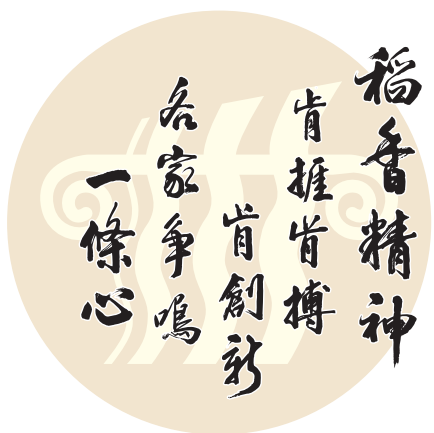 稻香精神
肯捱肯搏
肯創新
各家爭鳴
一條心